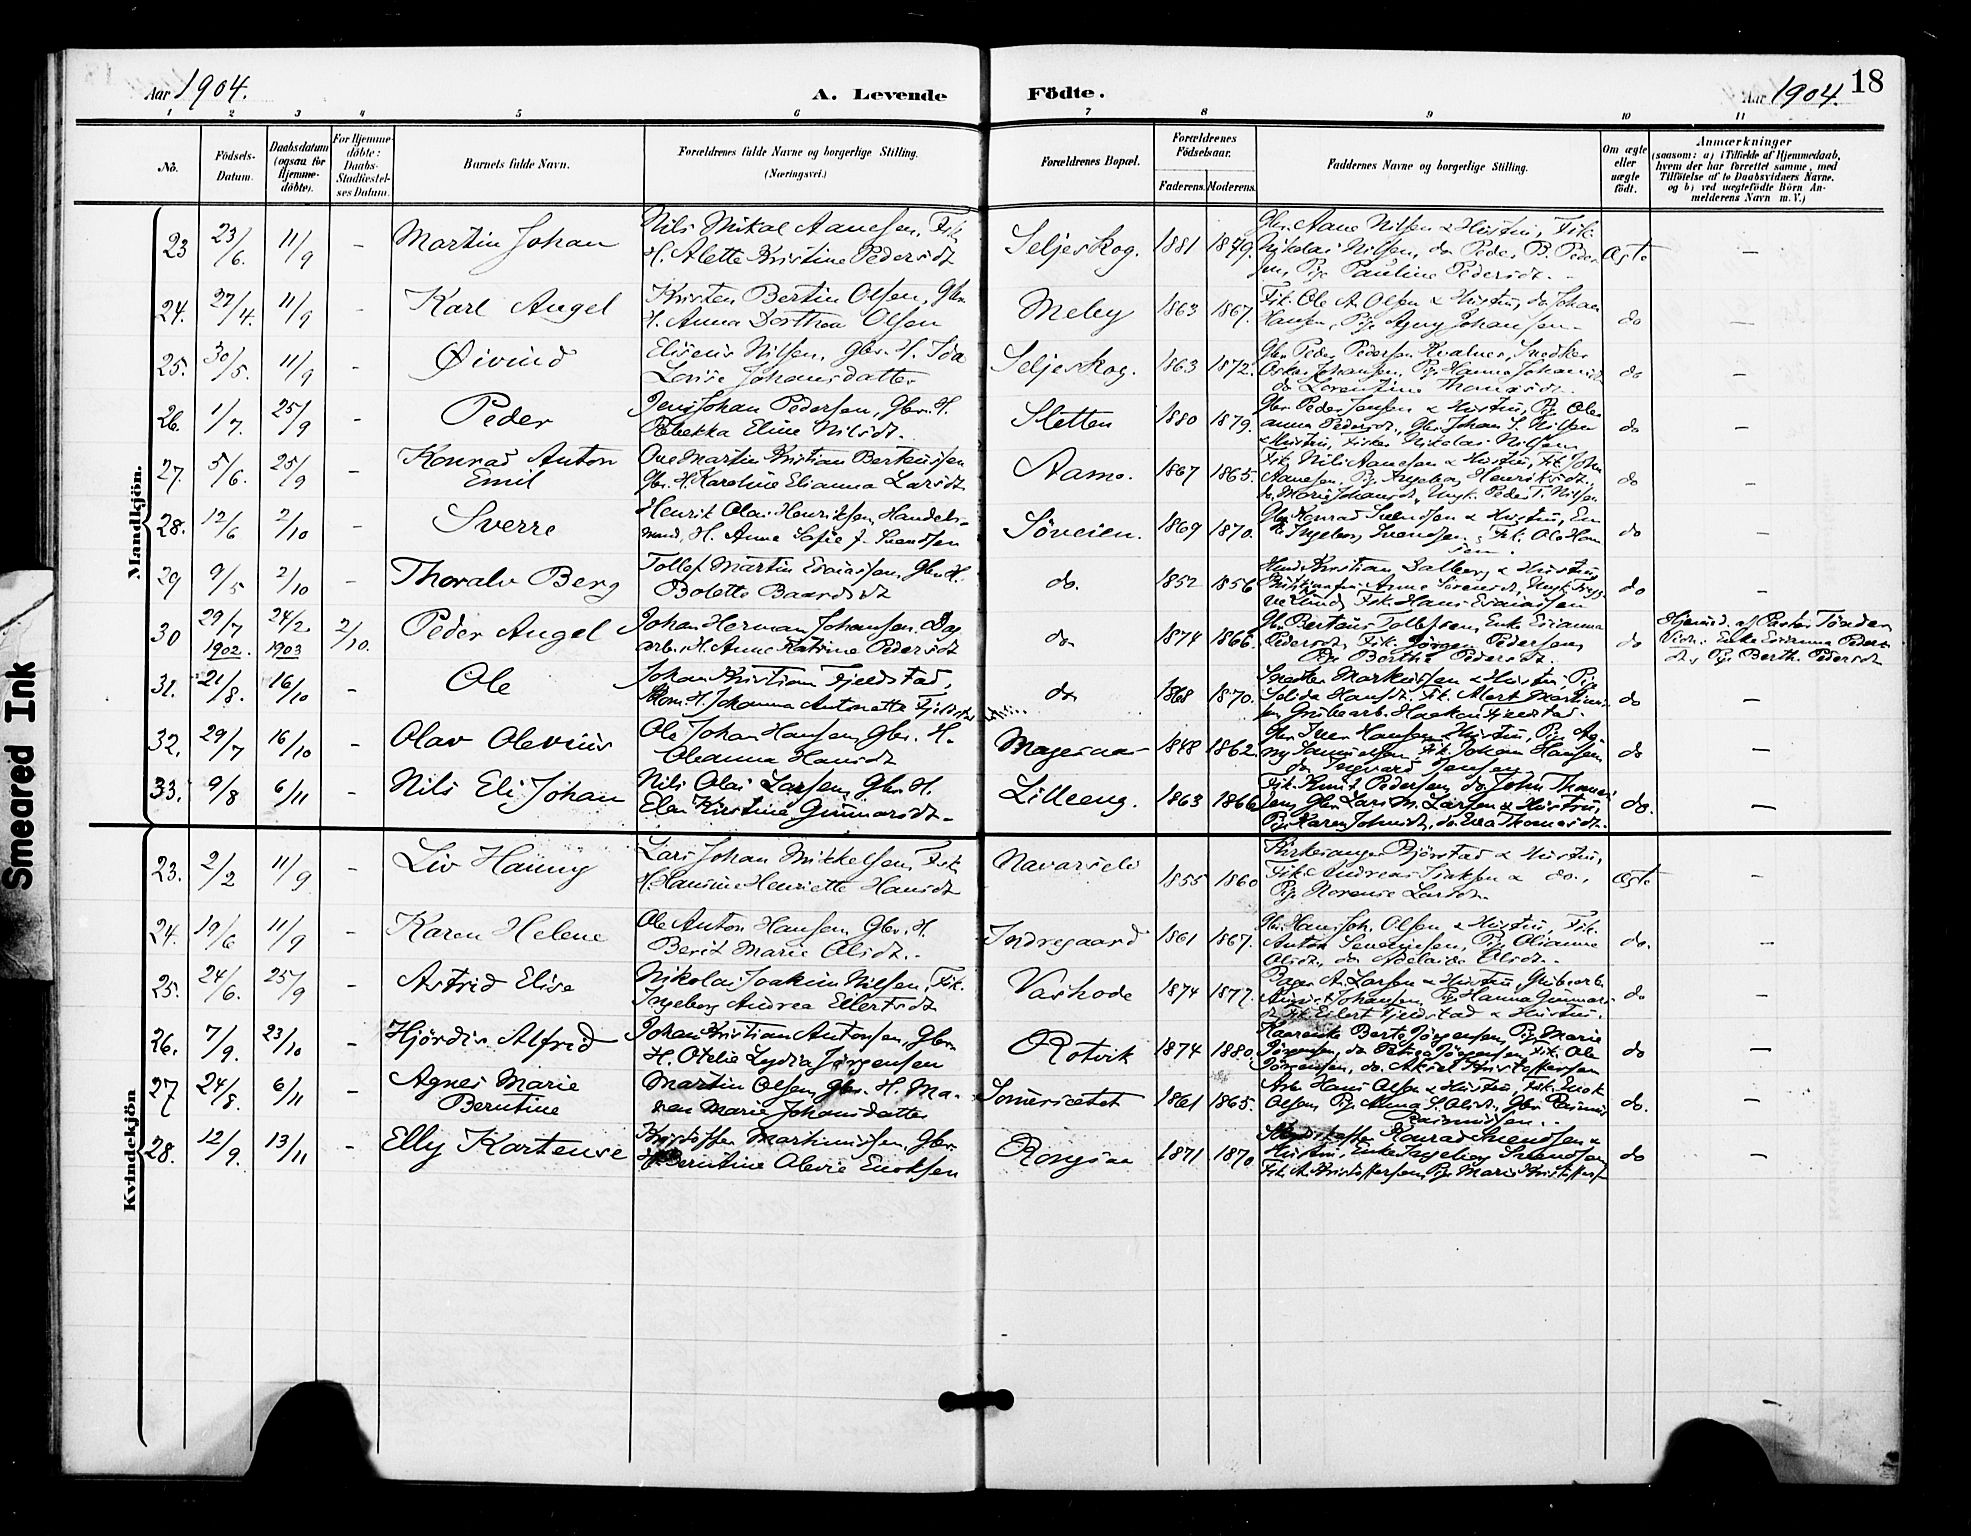 Smeared Ink
Aar 1904.
A. Levende Födte.
Aar 1904.
18
1 2 3 4 5 6 7 8 9 10 11
No.
Födsels-Datum.
Daabsdatum (ogsaa for Hjemme-döbte).
For Hjemme-döbte: Daabs-Stadfæstel-ses Datum.
Barnets fulde Navn.
Forældrenes fulde Navne og borgerlige Stilling.
(Næringsvei.)
Forældrenes Bopæl.
Forældrenes Födselsaar.
Faderens. Moderens.
Faddernes Navne og borgerlige Stilling.
Om ægte eller uægte födt.
Anmærkninger
(saasom: a) i Tilfælde af Hjemmedaab,
hvem der har forrettet samme, med
Tilföielse af to Daabsvidners Navne.
og b) ved uægtefödte Börn An-
melderens Navn m. V.)
Mandkjön.
23 23/6. 11/9 - Martin Johan
Nils Mikal Aanesen, Fisk.
H. Alette Kristine Pedersdt
Seljeskog. 1881 1879.
Gbr. Aane Nilsen & Hustru, Fisk.
Nikolai Nilsen, do Peder B. Peder
sen, Pige Pauline Pedersdt.
Ægte -
24. 27/4. 11/9 - Karl Angel
Kristen Bertin Olsen, Gbr.
H. Anna Dorthea Olsen
Meby 1863 1867.
Fisk. Ole A. Olsen & Hustru, do Johan
Hansen, Pige Agny Johansen.
do -
25. 30/5. 11/9 - Øivind
Eliseus Nilsen, Gbr. H. Ida
Lovise Johansdatter
Seljeskog. 1863 1872.
Gbr. Peder Pedersen Kvalnes, Snedker
Oskar Johansen, Pige Hanna Johansdt
do Lorentine Thomasdt.
do -
26. 1/7. 25/9 - Peder
Jens Johan Pedersen, Gbr. H.
Rebekka Eline Nilsdt.
Sletten 1880 1879.
Gbr. Peder Jensen & Hustru, Pige Ole
anna Pedersdt., Gbr. Johan S. Nilsen
& Hustru, Fisker Nikolai Nilsen
do -
27. 5/6. 25/9 - Konrad Anton
Emil
Ove Martin Kristian Berteussen
Gbr. H. Karoline Elianna Larsdt
Aamo. 1867 1865.
Fisk. Nils Aanesen & Hustru, Fisk. John
Aanesen, Pige Ingeborg Henriksdt.,
do Marie Johansdt, Ungk. Peder T. Nilsen
do -
28. 12/6 2/10 - Sverre
Henrik Olai Henriksen, Handels-
mand, H. Anne Sofie f. Svendsen
Söveien. 1869 1870.
Gbr. Konrad Svendsen & Hustru, En
ke Ingeborg Svendsen, Fisk. Ole Han
sen.
do
29 9/5 2/10 - Thoralv Berg
Tollef Martin Esaiassen, Gbr. H.
Bolette Baardsdt
do. 1852 1856
do -
30 29/7 1902. 24/2 1903 2/10. Peder Angel
Johan Herman Johansen, Dag
arb., H. Anne Katrine Pedersdt
do 1874 1866.
Gbr. Berteus Tollefsen, Enke Erianna
Pedersdt, Fisk. Jörgen Pedersen,
Pige Berthe Pedersdt.
do
Hjemmed. af Pastor Tönder
Vidn.: Enke Erianna Peders
dt., Pige Berth. Pedersdt
31. 21/8. 16/10 - Ole
Johan Kristian Fjeldstad,
H. Johanna Antonette Fjeldstad
do 1868 1870.
do -
32. 29/7 16/10 - Olav Olevius
Ole Johan Hansen, Gbr. H.
Oleanna Hansdt
Mageraa 1848 1862.
Gbr. Iver Hansen & Hustru, Pige Ag-
ny Samuelsen, Fisk. Johan Hansen
do Ingvard Jensen
do -
33. 9/8 6/11 - Nils Eli Johan
Nils Olai Larsen, Gbr. H.
Elen Kristine Gunnarsdt.
Lilleeng. 1863 1866
Fisk. Knut Pedersen, do John Thomas
sen, Gbr. Lars M. Larsen & Hustru,
Pige Karen Johnsdt, do Eva Thomasdt.
do. -
Kvindekjön
23. 2/2 11/9 - Liv Hanny
Lars Johan Mikkelsen, Fisk.
H. Hansine Henriette Hansdt
Navarseli 1855 1860
Kirkesanger Björstad & Hustru,
Fisk. Andreas Isaksen & do.,
Pige Norense Larsdt.
Ægte -
24. 19/6 11/9 - Karen Helene
Ole Anton Hansen, Gbr. H.
Berit Marie Olsdt.
Indregaard 1861 1867.
Gbr. Hans Joh. Olsen & Hustru, Fisk.
Anton Severinsen, Pige Olianne
Olsdt, do Adelaide Olsdt.
do. -
25. 24/6. 25/9 - Astrid Elise
Nikolai Joakim Nilsen, Fisk.
Ingeborg Andrea Ellertsdt
Vashode 1874 1877.
do -
26. 7/9. 23/10 - Hjördis Alfrid
Johan Kristian Antonsen, Gbr.
H. Otelie Lydia Jörgensen
Rotvik 1874 1880.
Jörgensen, do Petra Jörgensen, Fisk. Ole
Jörgensen, do. Aksel Kristoffersen
do -
27 24/8. 6/11 - Agnes Marie
Berntine
Martin Olsen, Gbr. H. Ma-
ren Marie Johansdatter
Somersætet 1861 1865.
Arb. Hans Olsen & Hustru, Fisk. Enok
Olsen, Pige Anna S. Olsdt., Gbr. Rasmus
Rasmussen.
do. -
28. 12/9. 13/11 - Elly Kartense
Kristoffer Martinussen, Gbr.
H. Berntine Olevie Enoksen
Rongsaa 1871 1870.
Konrad Svendsen &
Hustru, Enke Ingeborg Svendsen,
Fisk. A. Kristoffersen, Pige Marie Kristoffers
do -